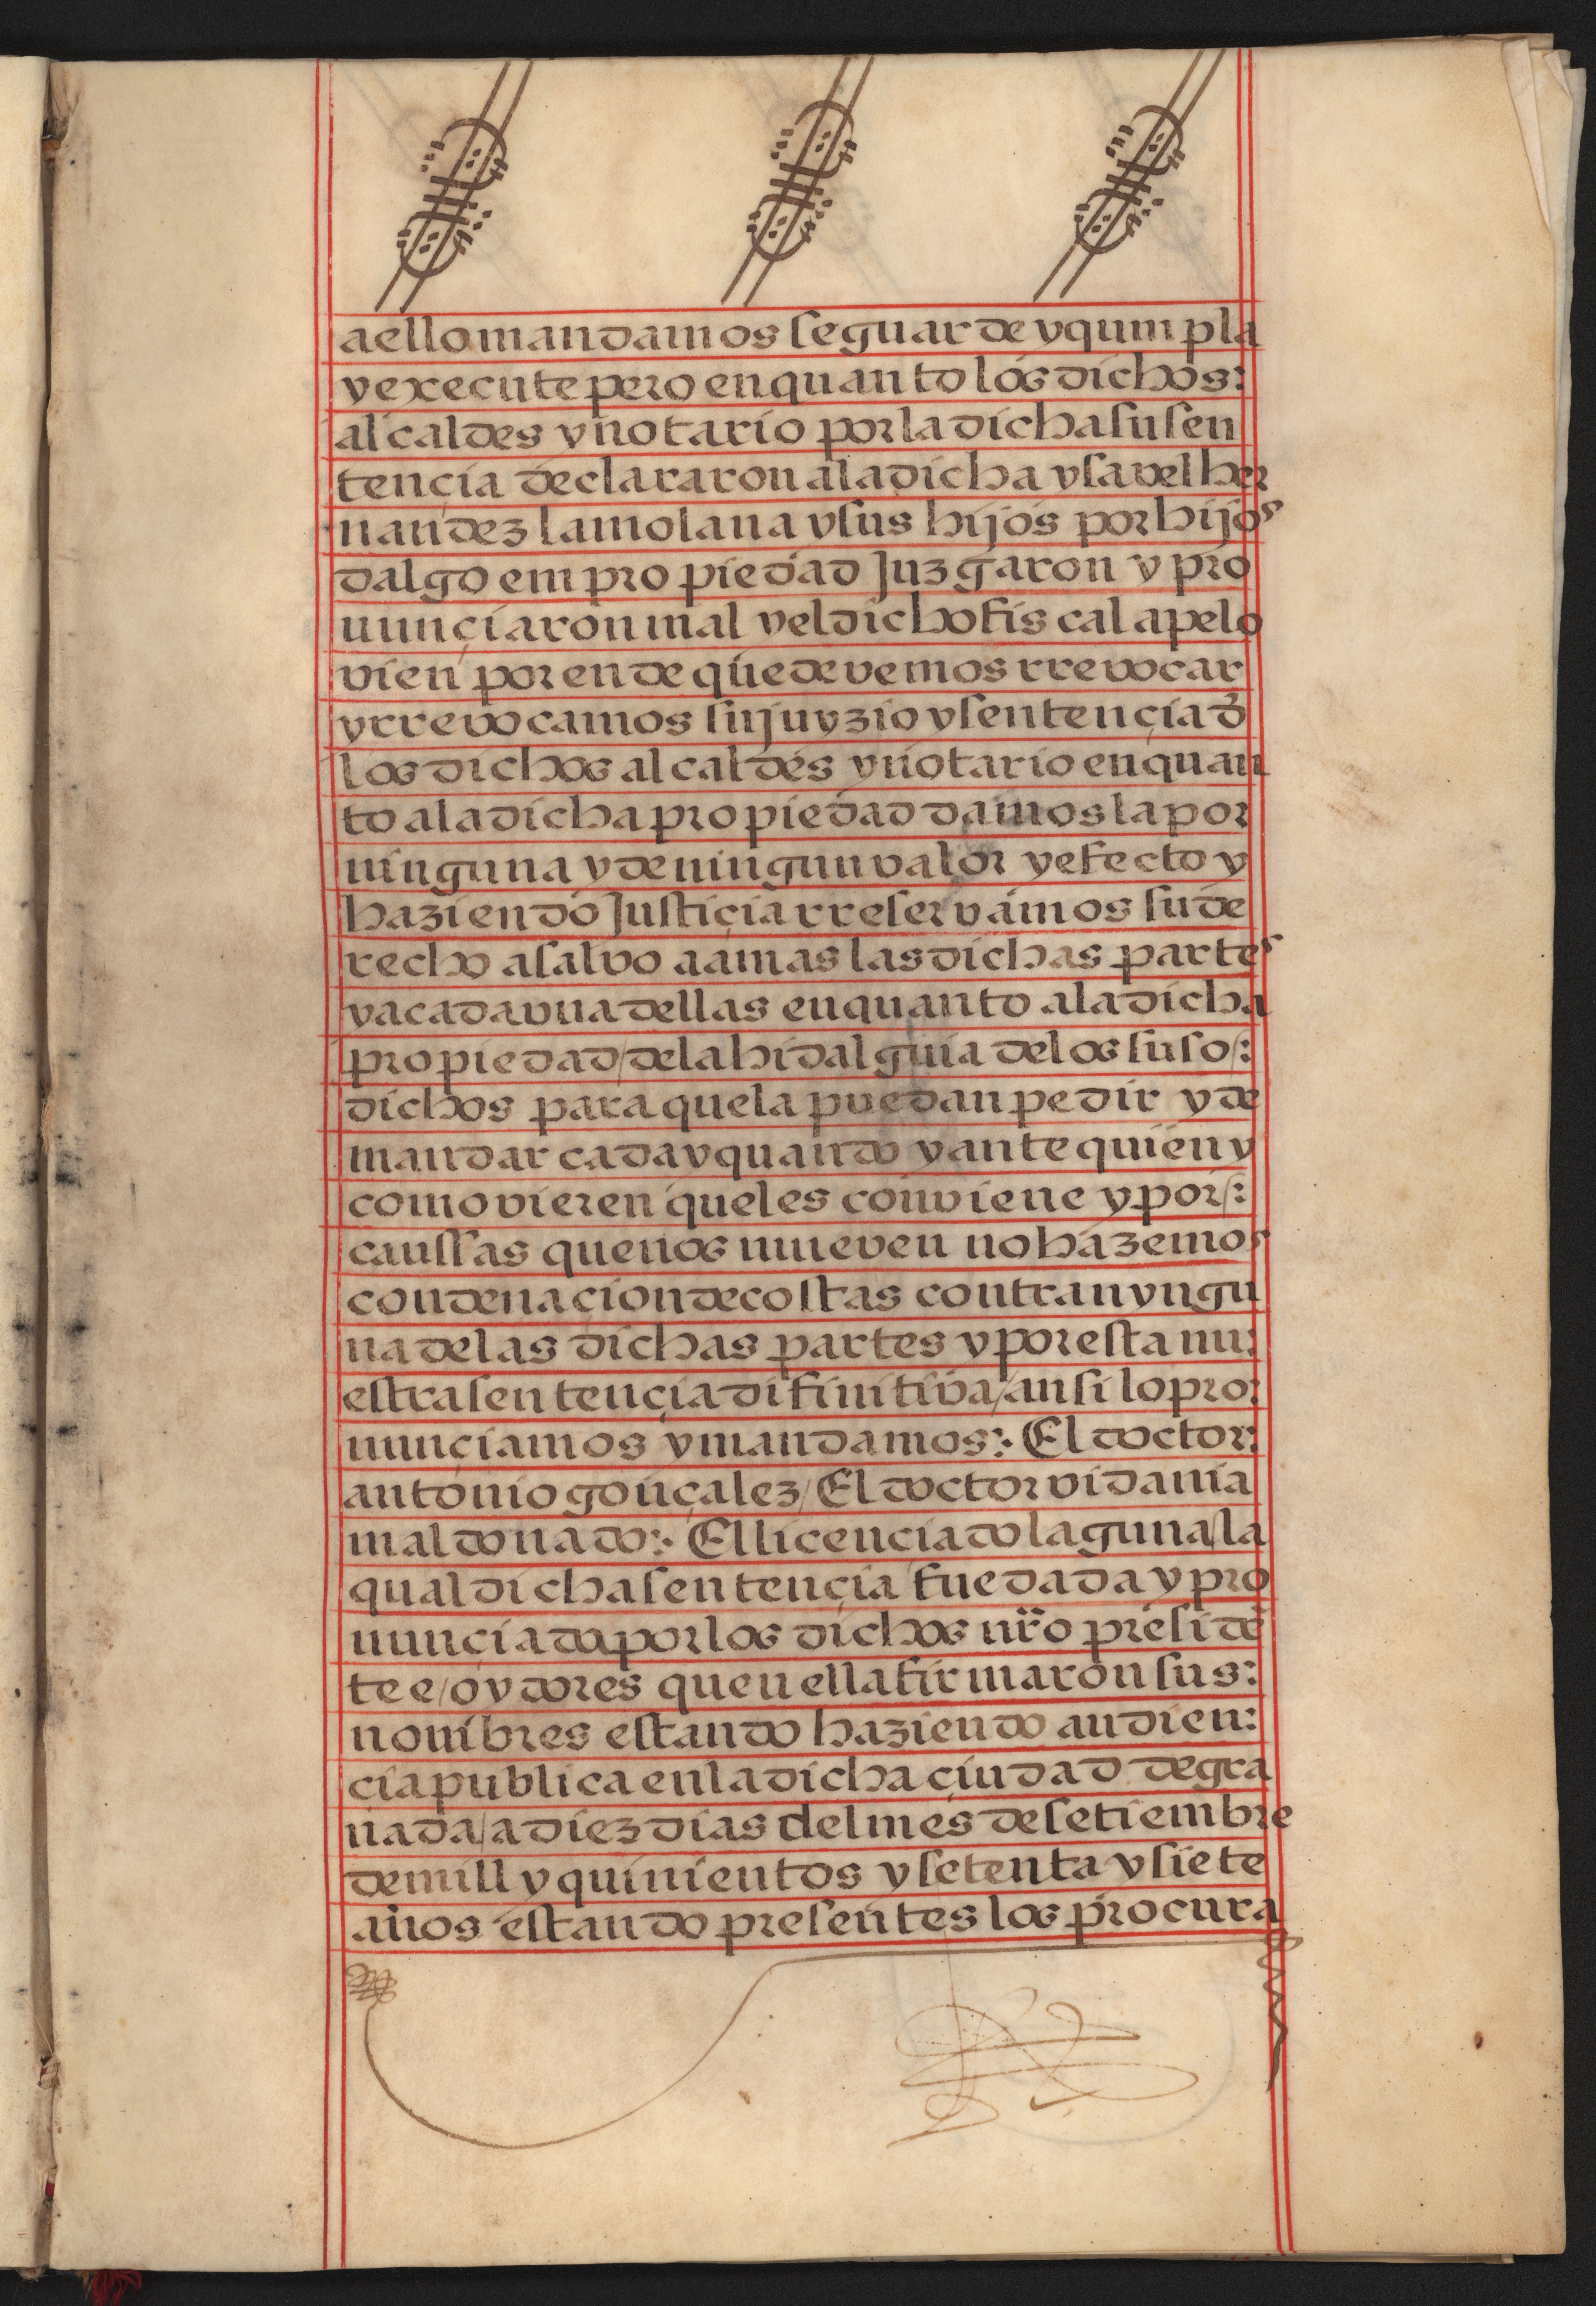 a ello mandamos se guarde y qumpla
y execute pero en quanto los dichos:
alcaldes y notario por la dicha su sen
tençia declararon a la dicha ysavel her
nandez la molana y sus hijos por hijos
dalgo em propiedad Juzgaron y pro
nunçiaron mal y el dicho fiscal apelo
vien por ende que devemos rrevocar
y rrevocamos su juyzio y sentençia d̄
los dichos alcaldes y notario en quan
to a la dicha propiedad damos la por
ninguna y de ningun valor y efecto y
haziendo Justiçia rreservamos su de
recho a salvo a amas las dichas partes
y a cada vna dellas en quanto a la dicha
propiedad/de la hidalguia de los suso/:
dichos para que la puedan pedir y de
mandar cada y quando y ante quien y
como vieren que les conviene y por/:
caussas que nos mueven no hazemos
condenaçion de costas contra nyngu
na de las dichas partes y por esta nu:
estra sentençia difinitiva/ansi lo pro:
nunçiamos y mandamos:· El doctor:
antonio gonçalez/El doctor vidania
maldonado:· El licenciado laguna/la
qual dicha sentençia fue dada y pro
nunciada por los dichos nr̄o preside̅
te e/oydores que n ella firmaron sus:
nombres estando haziendo audien:
cia publica en la dicha ciudad de gra
nada/a diez dias del mes de setiembre
de mill y quinientos y setenta y siete
años estando presentes los procura